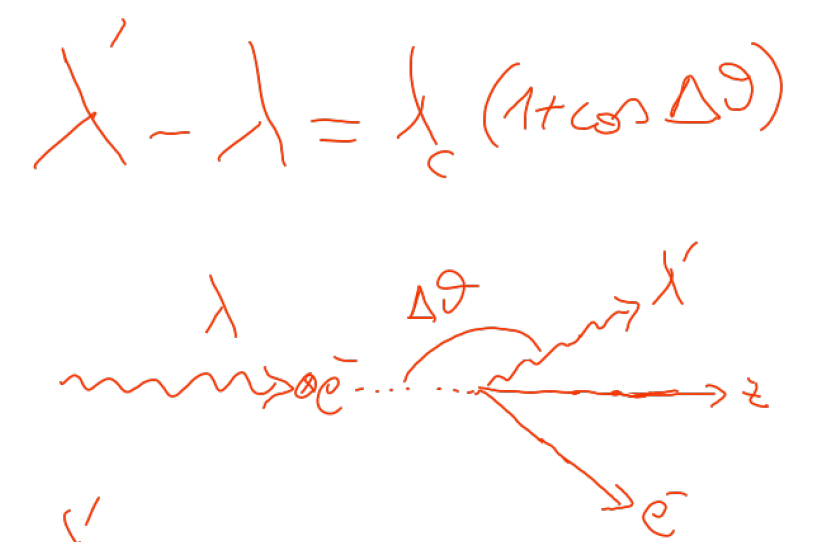 λ' - λ = λc (1+cos Δϑ)
λ Δϑ λ'
e⁻ z
e⁻